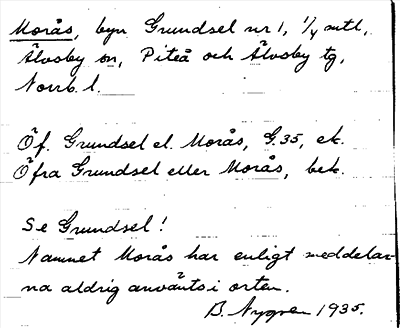 Morås, byn Grundsel nr 1, 1/4 mtl,
Älvsby sn, Piteå och Älvsby tg,
Norrb. l.
Öf. Grundsel el. Morås, G. 35, ek.
Öfra Grundsel eller Morås, bek.
Se Grundsel!
Namnet Morås har enligt meddelar-
na aldrig använts i orten.
B. Nygren 1935.